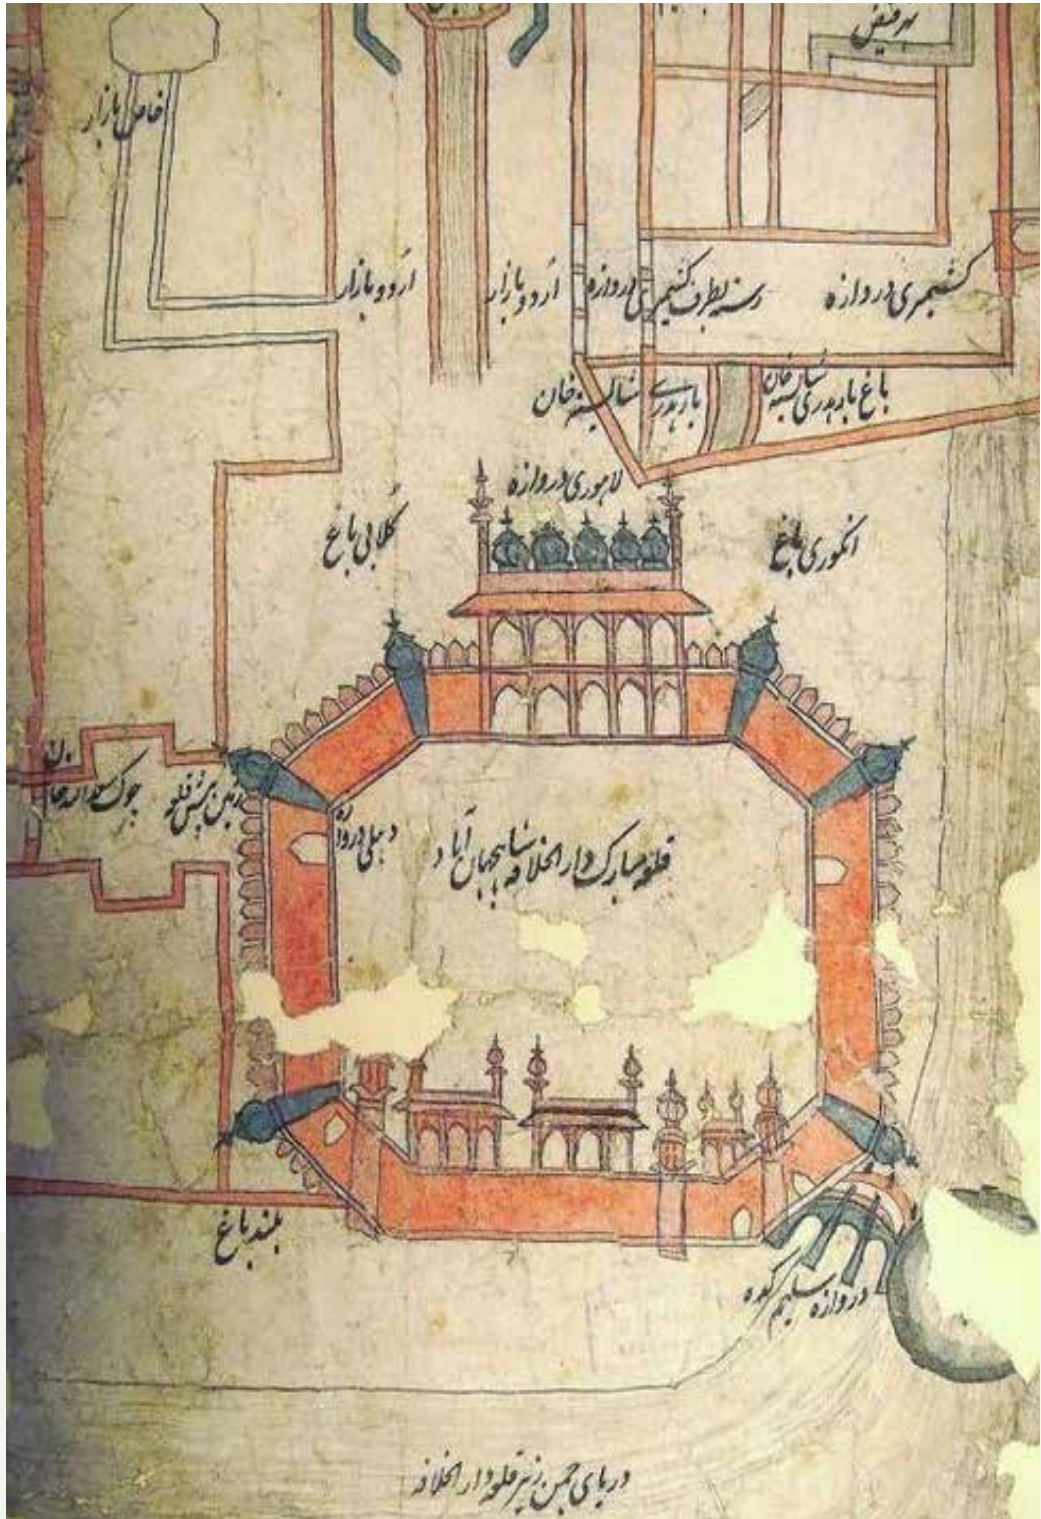 نهر فیض
خاص بازار
اردو بازار
اردو بازار
کشمیری دروازه
رسته بطرف کشمیری دروازه
باغ بارهدری شایسته خان
بارهدری شایسته خان
لاهوری دروازه
گلابی باغ
انگوری باغ
چوک سعد الله خان
زمین پیش قلعه
دهلی دروازه
قلعه مبارک دار الخلافه شاهجهان آباد
بلند باغ
دروازه سلیم گده
دریای جمن زیر قلعه دار الخلافه